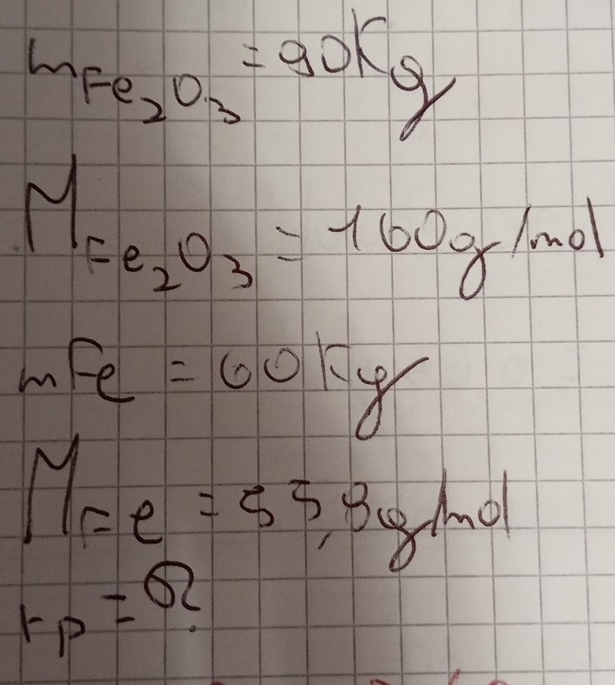 mFe₂O₃ = 90Kg
MFe₂O₃ = 160g/mol
mFe = 60Kg
MFe = 55,8g/mol
rp = ?